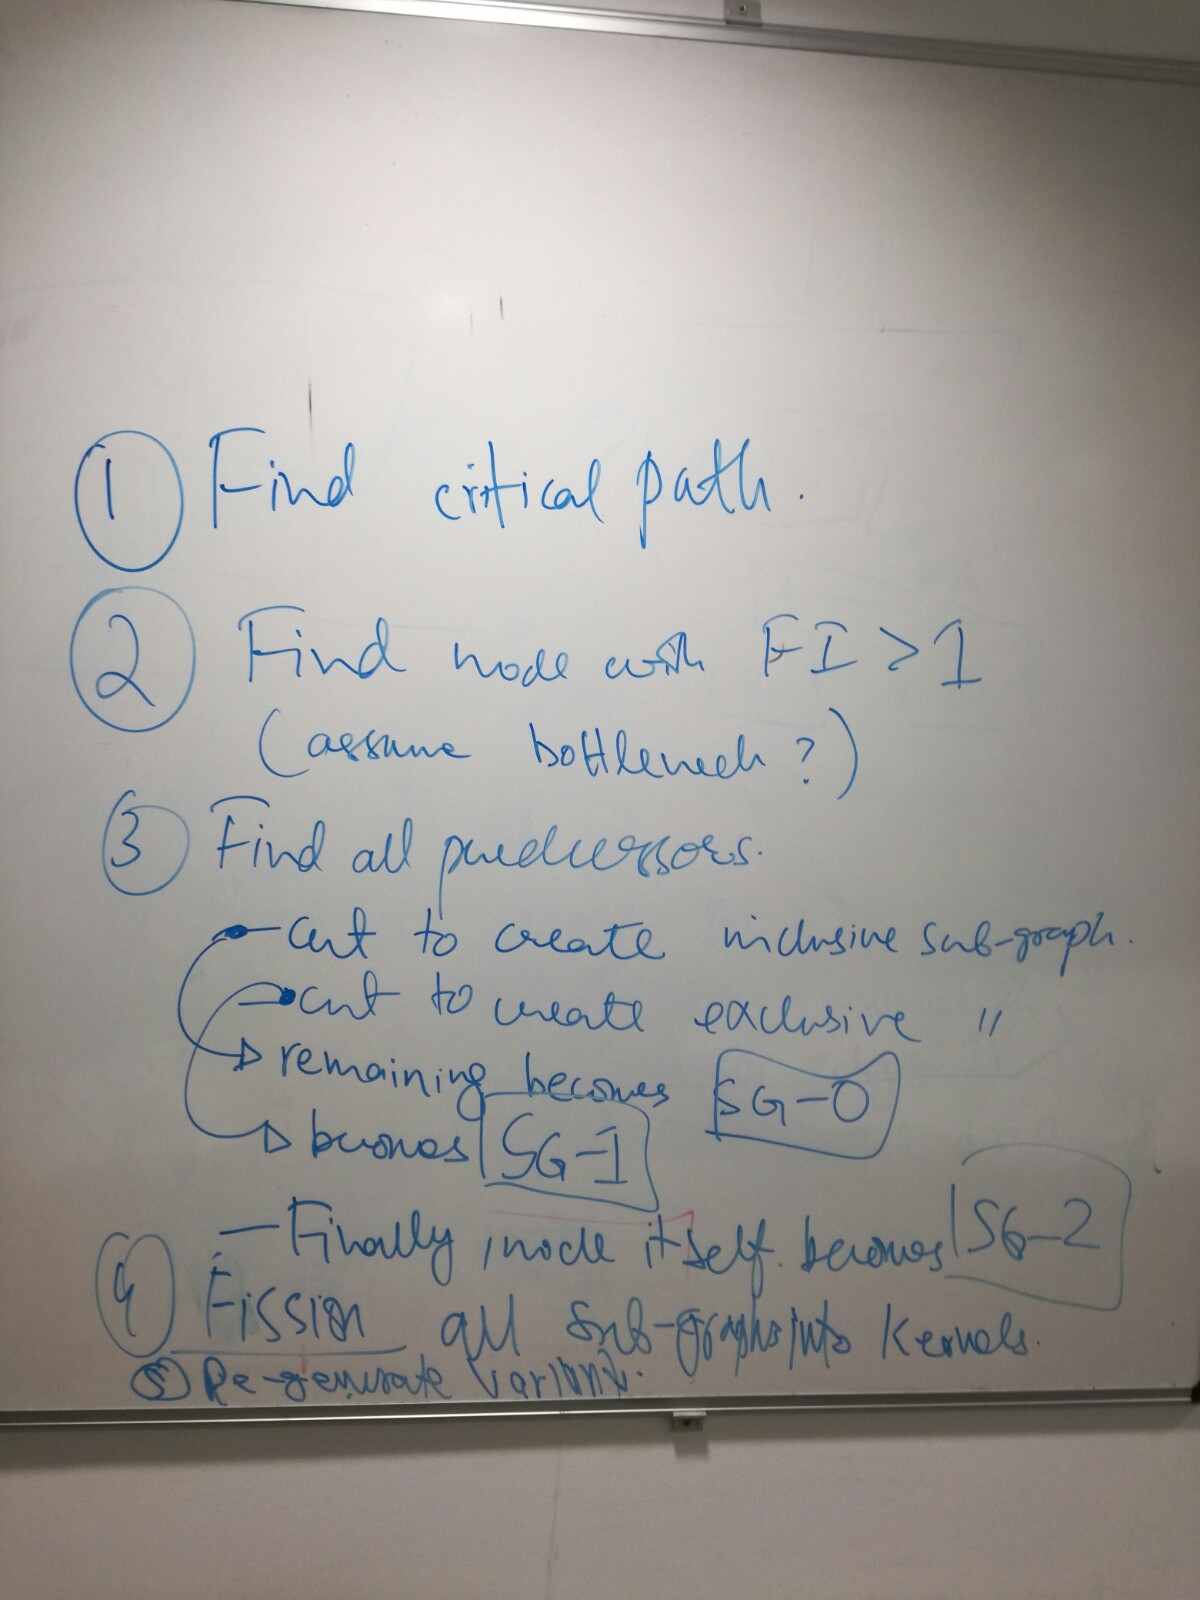 ① Find critical path.
② Find node with FI > 1
(assume bottleneck ?)
③ Find all predecessors.
- cut to create inclusive sub-graph.
- cut to create exclusive "
remaining becomes SG-0
becomes SG-1
- Finally, node itself becomes SG-2
④ Fission all sub-graphs into kernels.
⑤ Re-generate variant.